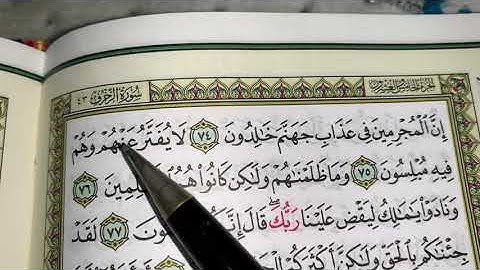 سُورَةُ الزُّخْرُفِ ٤٣
إِنَّ الْمُجْرِمِينَ فِي عَذَابِ جَهَنَّمَ خَالِدُونَ ٧٤ لَا يُفَتَّرُ عَنْهُمْ وَهُمْ
فِيهِ مُبْلِسُونَ ٧٥ وَمَا ظَلَمْنَاهُمْ وَلَٰكِنْ كَانُوا هُمُ ٧٦
وَنَادَوْا يَا مَالِكُ لِيَقْضِ عَلَيْنَا رَبُّكَ ۖ قَالَ ٧٧ لَقَدْ
جِئْنَاكُمْ بِالْحَقِّ وَلَٰكِنَّ أَكْثَرَكُمْ